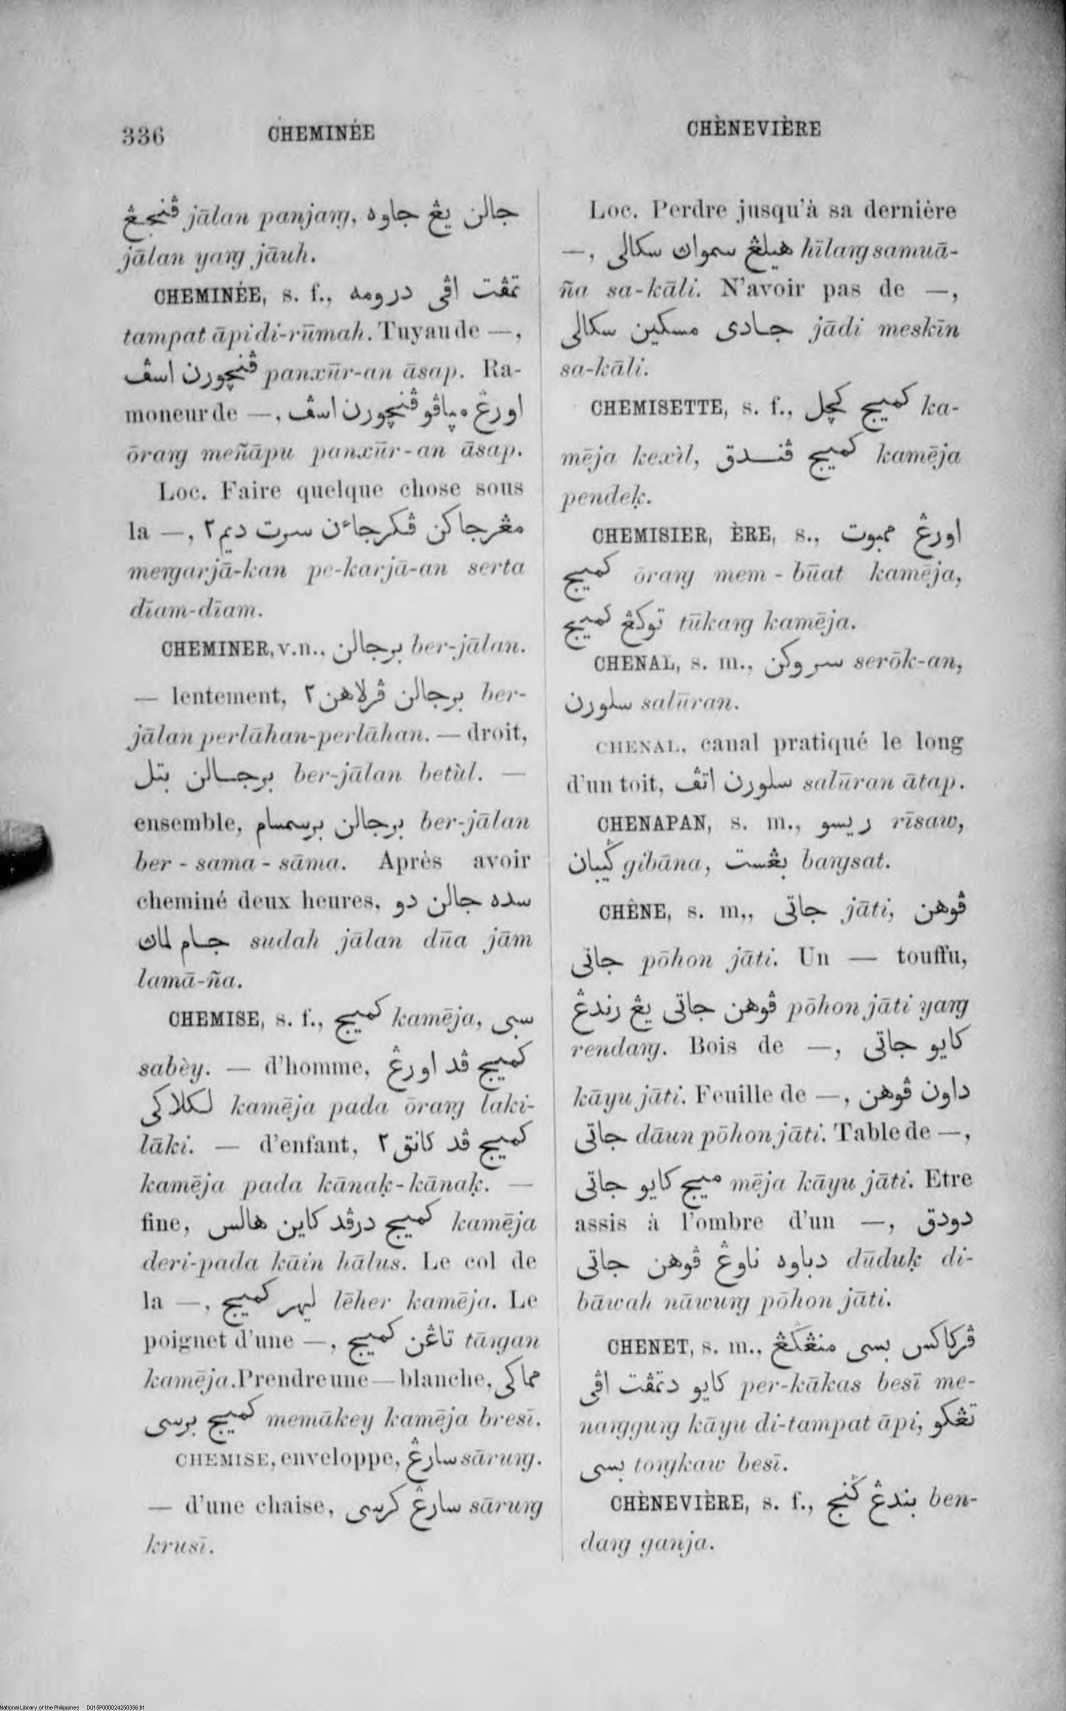 336 CHEMINÉE CHÈNEVIÈRE
ڤنجڠ jālan panjarg, جالن يڠ جاوه
jālan yarg jāuh.
CHEMINÉE, s. f., تمڤت اڤي درومه
tampat āpi di-rūmah. Tuyau de —,
ڤنچورن اسڤ panxūr-an āsap. Ra-
moneur de —, اورڠ مڽاڤو ڤنچورن اسڤ
ōrarg meñāpu panxūr-an āsap.
Loc. Faire quelque chose sous
la —, مڠرجاكن ڤكرجاءن سرت ديم٢
mergarjā-kan pe-karjā-an serta
dīam-dīam.
CHEMINER, v.n., برجالن ber-jālan.
— lentement, برجالن ڤرلاهن٢ ber-
jālan perlāhan-perlāhan. — droit,
برجالن بتل ber-jālan betùl. —
ensemble, برجالن برسمسام ber-jālan
ber-sama-sāma. Après avoir
cheminé deux heures, سده جالن دو
جام لماڽ sudah jālan dūa jām
lamā-ña.
CHEMISE, s. f., كميج kamēja, سبي
sabèy. — d'homme, كميج ڤد اورڠ
لكلاكي kamēja pada ōrarg laki-
lāki. — d'enfant, كميج ڤد كانق٢
kamēja pada kānaḳ-kānaḳ. —
fine, كميج درڤد كاين هالس kamēja
deri-pada kāin hālus. Le col de
la —, ليهر كميج lēher kamēja. Le
poignet d'une —, تاڠن كميج tārgan
kamēja. Prendre une — blanche, مماكي
كميج برسي memākey kamēja bresī.
CHEMISE, enveloppe, سارڠ sārurg.
— d'une chaise, سارڠ كرسي sārurg
krusī.
Loc. Perdre jusqu'à sa dernière
—, هيلڠ سمواڽ سكالي hīlarg samuā-
ña sa-kāli. N'avoir pas de —,
جادي مسكين سكالي jādi meskīn
sa-kāli.
CHEMISETTE, s. f., كميج كچل ka-
mēja kexìl, كميج ڤندق kamēja
pendeḳ.
CHEMISIER, ÈRE, s., اورڠ ممبوت
كميج ōrarg mem-būat kamēja,
توكڠ كميج tūkarg kamēja.
CHENAL, s. m., سروكن serōk-an,
سلورن salūran.
CHENAL, canal pratiqué le long
d'un toit, سلورن اتڤ salūran ātap.
CHENAPAN, s. m., ريسو rīsaw,
ݢيبان gibāna, بڠست bargsat.
CHÊNE, s. m,, جاتي jāti, ڤوهن
جاتي pōhon jāti. Un — touffu,
ڤوهن جاتي يڠ رندڠ pōhon jāti yarg
rendarg. Bois de —, كايو جاتي
kāyu jāti. Feuille de —, داون ڤوهن
جاتي dāun pōhon jāti. Table de —,
ميج كايو جاتي mēja kāyu jāti. Etre
assis à l'ombre d'un —, دودق
دباوه ناوڠ ڤوهن جاتي dūduḳ di-
bāwah nāwurg pōhon jāti.
CHENET, s. m., ڤركاكس بسي منڠݢڠ
كايو دتمڤت اڤي per-kākas besī me-
narggurg kāyu di-tampat āpi, تڠكو
بسي torgkaw besī.
CHÈNEVIÈRE, s. f., بندڠ ݢنج ben-
darg ganja.
National Library of the Philippines